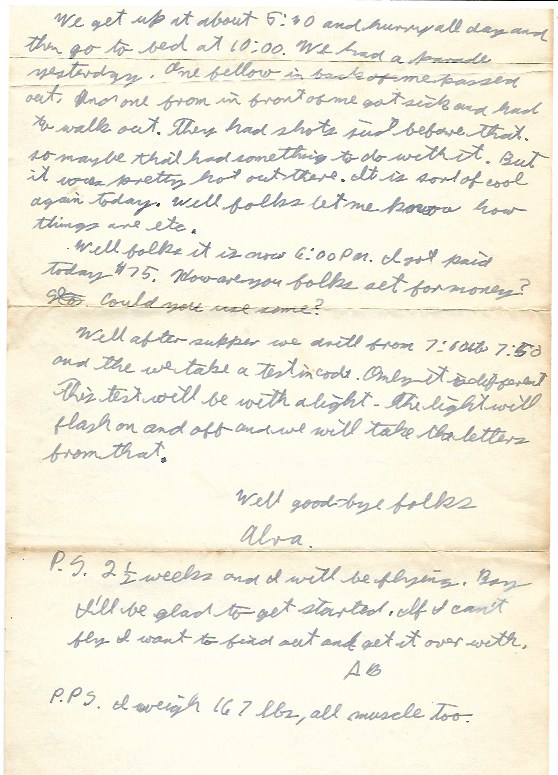 We get up at about 5:30 and hurry all day and
then go to bed at 10:00. We had a parade
yesterday. One fellow in back of me passed
out. And one from in front of me got sick and had
to walk out. They had shots just before that.
so maybe that had something to do with it. But
it was pretty hot out there. It is sort of cool
again today. Well folks let me know how
things are etc.
Well folks it is now 6:00 P.M. I got paid
today $75. How are you folks set for money?
Could you use some?
Well after supper we drill from 7:10 to 7:50
and the we take a test in code. Only it is different
This test will be with a light - The light will
flash on and off and we will take the letters
from that.
Well good-bye folks
Alva.
P.S. 2 1/2 weeks and I will be flying. Boy
I'll be glad to get started. If I can't
fly I want to find out and get it over with.
AB
P.P.S. I weigh 167 lbs, all muscle too.